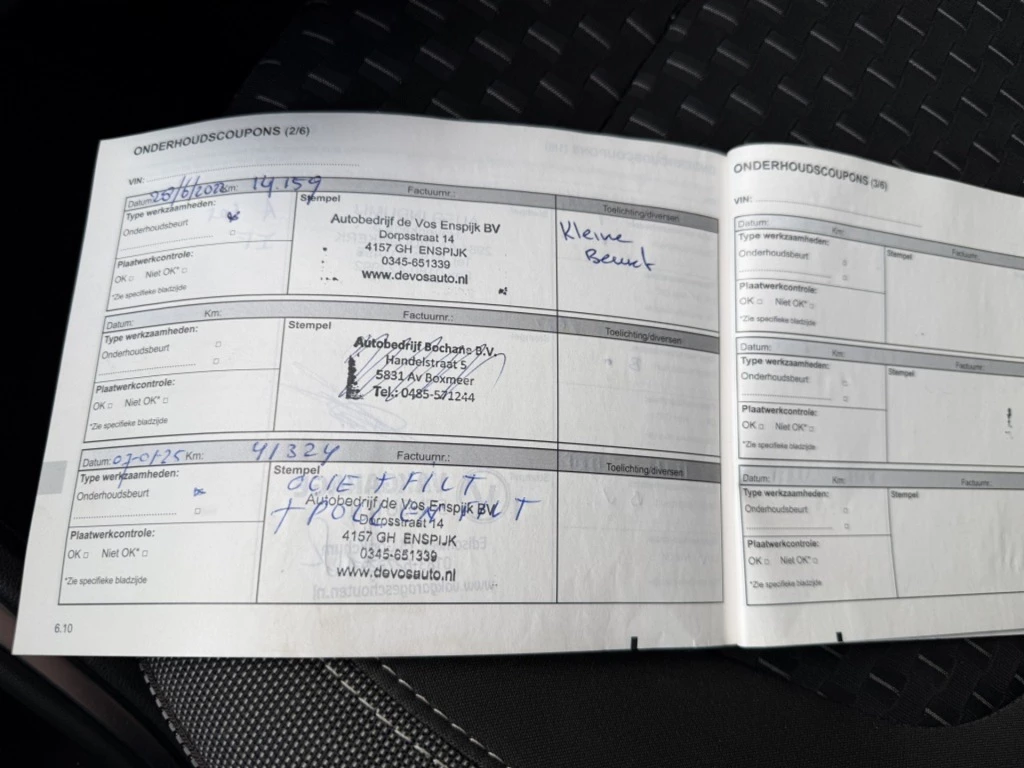 ONDERHOUDSCOUPONS (2/6)
VIN:
Datum: 25/6/2022 Km: 14.159 Factuurnr.:
Type werkzaamheden:
Onderhoudsbeurt
Plaatwerkcontrole:
OK Niet OK*
*Zie specifieke bladzijde
Stempel
Autobedrijf de Vos Enspijk BV
Dorpsstraat 14
4157 GH ENSPIJK
0345-651339
www.devosauto.nl
Toelichting/diversen
Kleine
Beurt
Datum: Km: Factuurnr.:
Type werkzaamheden:
Onderhoudsbeurt
Plaatwerkcontrole:
OK Niet OK*
*Zie specifieke bladzijde
Stempel
Autobedrijf Bochane B.V.
Handelstraat 5
5831 Av Boxmeer
Tel.: 0485-571244
Toelichting/diversen
Datum: 07-01-25 Km: 41324 Factuurnr.:
Type werkzaamheden:
Onderhoudsbeurt
Plaatwerkcontrole:
OK Niet OK*
*Zie specifieke bladzijde
Stempel
OLIE + FILT
+ POLLENFILT
Autobedrijf de Vos Enspijk BV
Dorpsstraat 14
4157 GH ENSPIJK
0345-651339
www.devosauto.nl
Toelichting/diversen
6.10
ONDERHOUDSCOUPONS (3/6)
VIN:
Datum: Km: Factuurnr.:
Type werkzaamheden:
Onderhoudsbeurt
Plaatwerkcontrole:
OK Niet OK*
*Zie specifieke bladzijde
Stempel
Datum: Km: Factuurnr.:
Type werkzaamheden:
Onderhoudsbeurt
Plaatwerkcontrole:
OK Niet OK*
*Zie specifieke bladzijde
Stempel
Datum: Km: Factuurnr.:
Type werkzaamheden:
Onderhoudsbeurt
Plaatwerkcontrole:
OK Niet OK*
*Zie specifieke bladzijde
Stempel